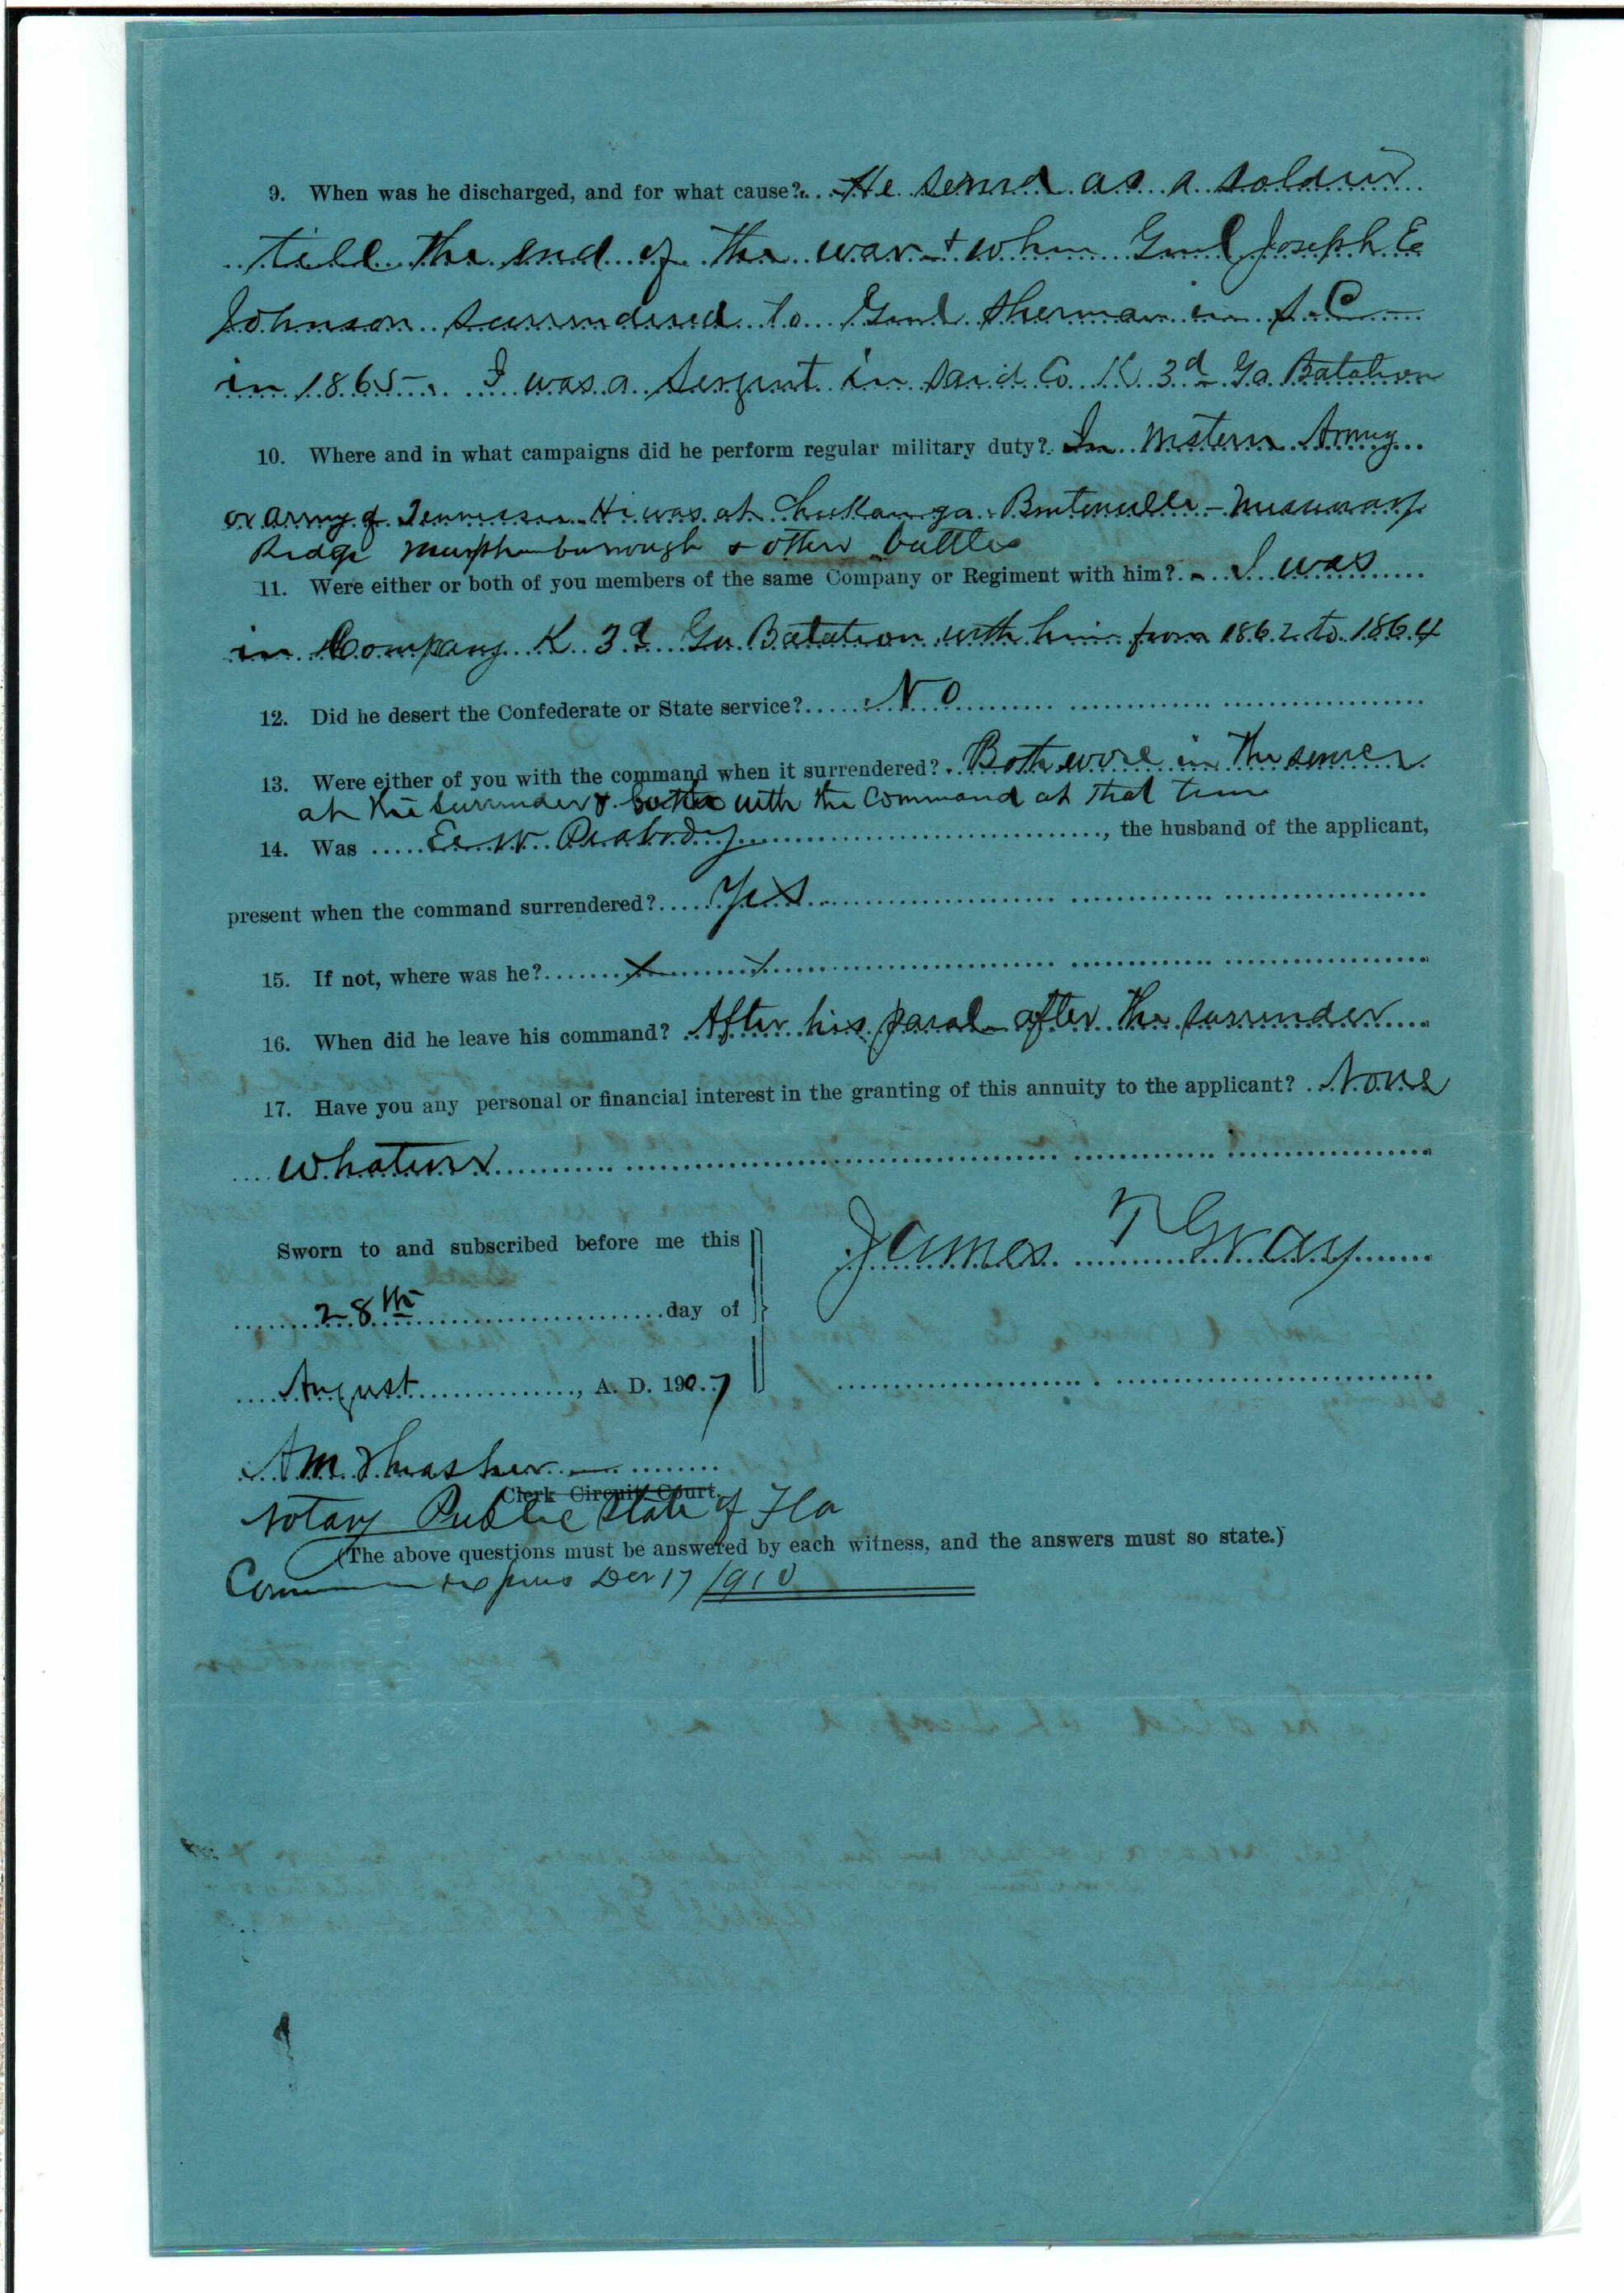 9. When was he discharged, and for what cause? He served as a soldier
till the end of the war & when Genl Joseph E
Johnson surrendered to Genl Sherman in S.C
in 1865. I was a Sergent in said Co. K 3d Ga Batalion
10. Where and in what campaigns did he perform regular military duty? In Western Army
or army of Tennessee He was at Chickamauga Bentonville - Missionary
Ridge Murphreesborough & other battles
11. Were either or both of you members of the same Company or Regiment with him? - I was
in Company K 3d Ga Batalion with him from 1862 to 1864
12. Did he desert the Confederate or State service? No
13. Were either of you with the command when it surrendered? Both were in the service
at the surrender & both with the Command at that time
14. Was E. W. Peabody, the husband of the applicant,
present when the command surrendered? Yes
15. If not, where was he? x x
16. When did he leave his command? After his parol after the surrender
17. Have you any personal or financial interest in the granting of this annuity to the applicant? None
whatever
Sworn to and subscribed before me this
James T Gray
28th day of
August, A. D. 1907
A M Thrasher
Clerk Circuit Court.
Notary Public State of Fla
(The above questions must be answered by each witness, and the answers must so state.)
Commission expires Dec 17 1910